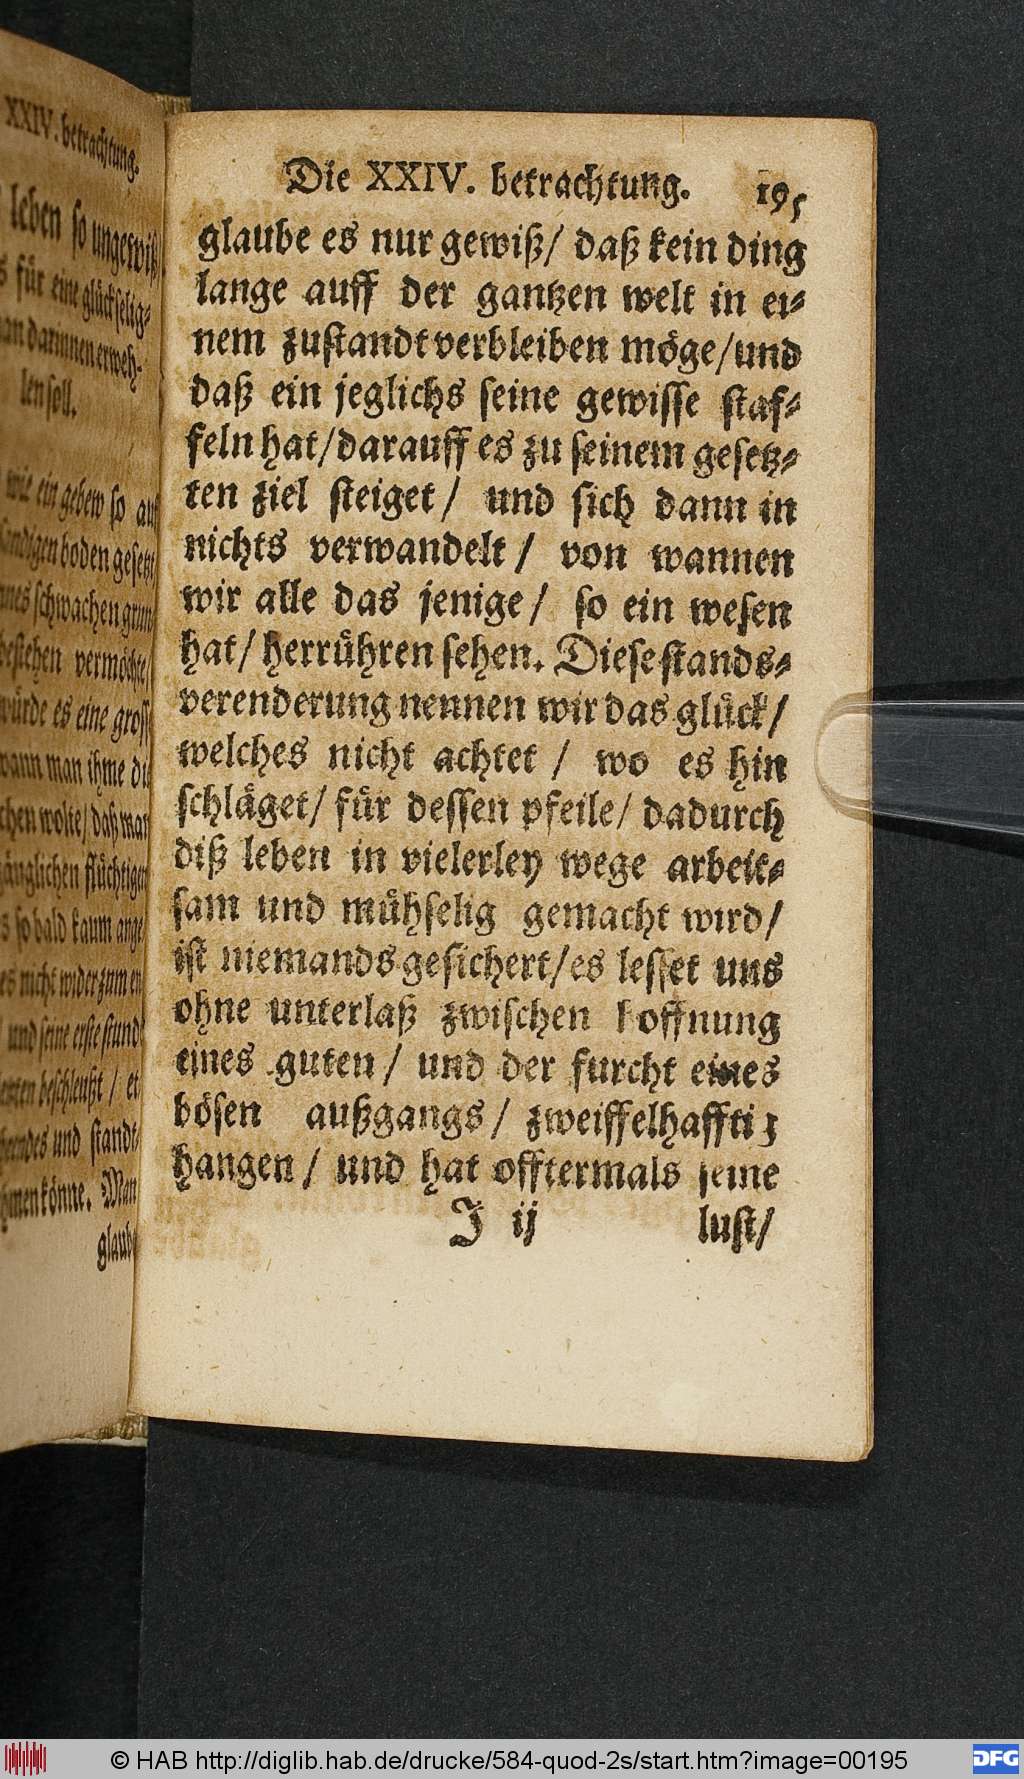 XXIV. betrachtung.
leben so ungewiß
für eine glückselig-
man darinnen erweh-
len soll.
wie ein gebew so auf
sandigen boden gesetzt
schwachen grun
bestehen vermöchte/
würde es eine grosse
wann man ihme di
chen wolte/ daß man
gänglichen flüchtigen
so bald kaum ange
es nicht wider zum en
und seine erste stund
beschleußt / et
und standt-
könne. Man
glaube
Die XXIV. betrachtung. 195
glaube es nur gewiß/ daß kein ding
lange auff der gantzen welt in ei-
nem zustandt verbleiben möge/und
daß ein jeglichs seine gewisse staf-
feln hat/darauff es zu seinem gesetz-
ten ziel steiget/ und sich dann in
nichts verwandelt / von wannen
wir alle das jenige/ so ein wesen
hat/ herrühren sehen. Diese stands-
verenderung nennen wir das glück/
welches nicht achtet / wo es hin
schläget/ für dessen pfeile/ dadurch
diß leben in vielerley wege arbeit-
sam und mühselig gemacht wird/
ist niemands gesichert/es lesset uns
ohne unterlaß zwischen hoffnung
eines guten / und der furcht eines
bösen außgangs/ zweiffelhafftig
hangen / und hat offtermals seine
J ij lust/
© HAB http://diglib.hab.de/drucke/584-quod-2s/start.htm?image=00195
DFG